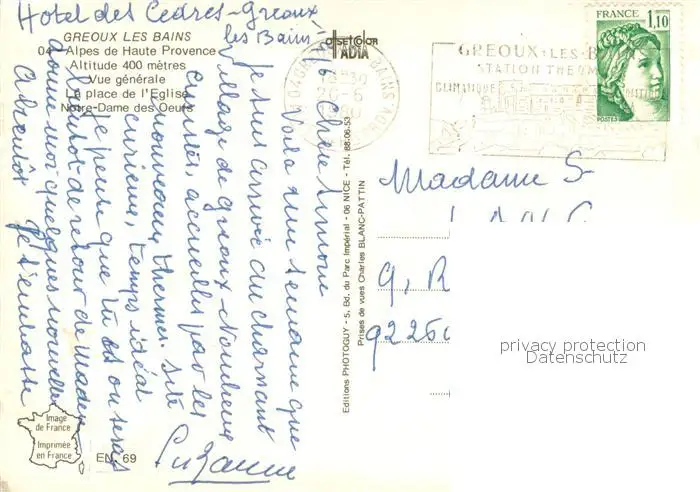 Hotel des Cèdres - Greoux
les Bains -
GREOUX LES BAINS
04 - Alpes de Haute Provence
Altitude 400 mètres
Vue générale
La place de l'Eglise
Notre-Dame des Oeufs
offset COLOR
ADIA
GREOUX-LES-B
STATION THERM
CLIMATIQUE
FRANCE
1,10
POSTES
Chère Simone
Voilà une semaine que
je suis arrivée au charmant
village de Gréoux. Nombreux
curistes, accueillis par les
nouveaux thermes. Site
curieux, temps idéal
Je pense que tu es ou seras
de retour de
donne moi quelques nouvelles
A bientôt Je t'embrasse
Suzanne
Editions PHOTOGUY - 5, Bd. du Parc Impérial - 06 NICE - Tél. 88.06.53
Prises de vues Charles BLANC-PATTIN
Madame S
9, R
92250
privacy protection
Datenschutz
Image
de France
Imprimée
en France
EN. 69